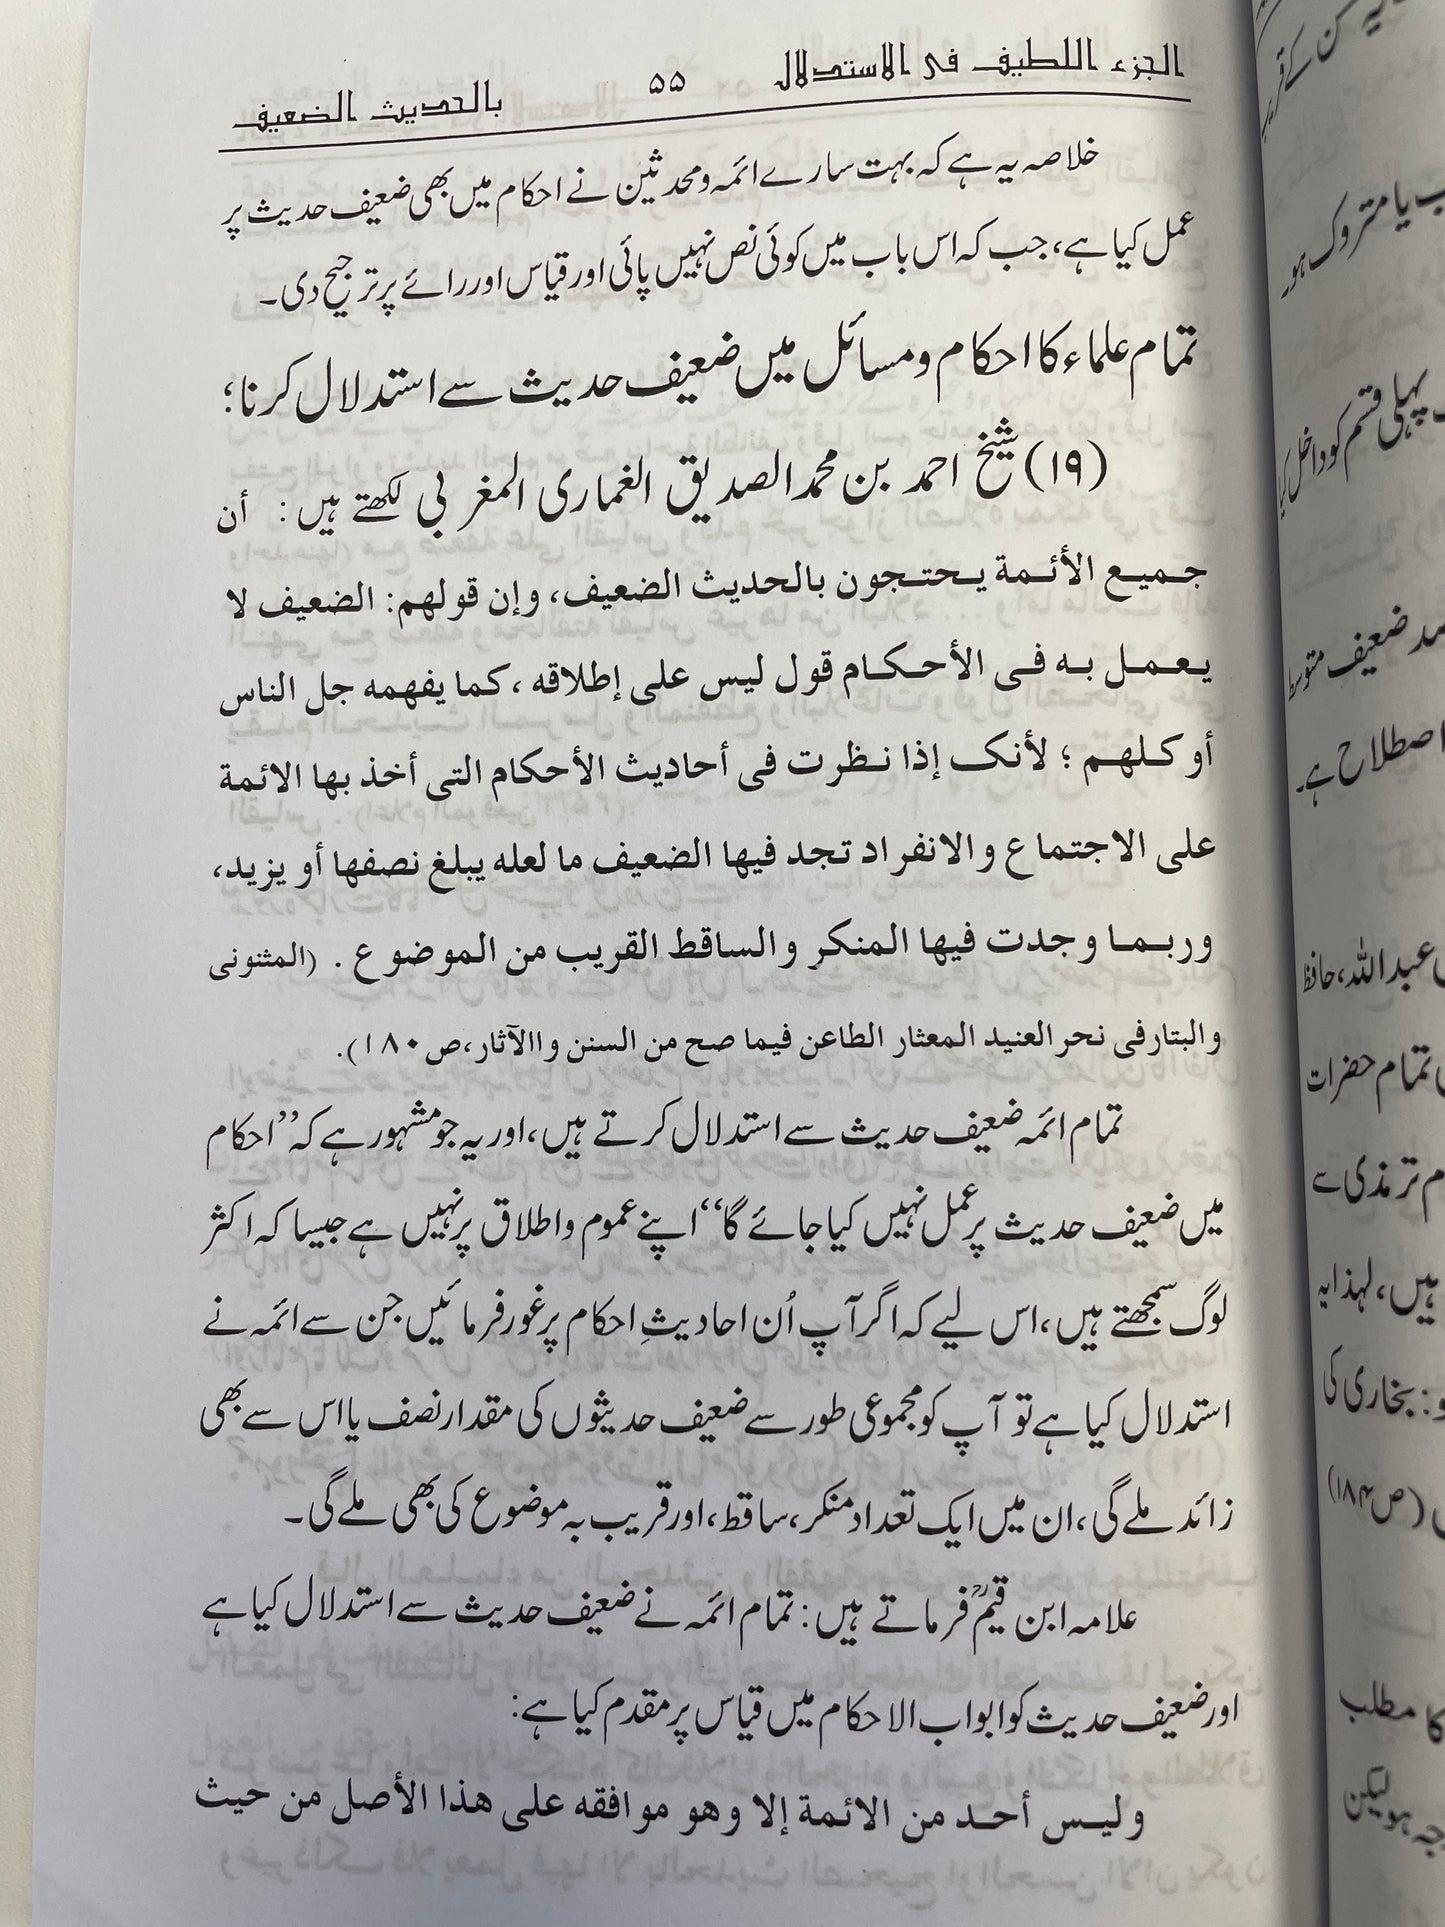 الجزء اللطيف فى الاستدلال ۵۵ بالحديث الضعيف
خلاصہ یہ ہے کہ بہت سارے ائمہ ومحدثین نے احکام میں بھی ضعیف حدیث پر
عمل کیا ہے، جب کہ اس باب میں کوئی نص نہیں پائی اور قیاس اور رائے پر ترجیح دی۔
تمام علماء کا احکام ومسائل میں ضعیف حدیث سے استدلال کرنا؛
(۱۹) شیخ احمد بن محمد الصدیق الغماری المغربی لکھتے ہیں: أن
جميع الأئمة يحتجون بالحديث الضعيف، وإن قولهم: الضعيف لا
يعمل به فى الأحكام قول ليس على إطلاقه ، كما يفهمه جل الناس
أو كلهم ؛ لأنک إذا نظرت فى أحاديث الأحكام التى أخذ بها الائمة
على الاجتماع والانفراد تجد فيها الضعيف ما لعله يبلغ نصفها أو يزيد،
وربما وجدت فيها المنكر والساقط القريب من الموضوع . (المثنونى
والبتارفى نحر العنيد المعثار الطاعن فيما صح من السنن واالآثار،ص۱۸۰).
تمام ائمہ ضعیف حدیث سے استدلال کرتے ہیں، اور یہ جو مشہور ہے کہ ”احکام
میں ضعیف حدیث پر عمل نہیں کیا جائے گا“ اپنے عموم واطلاق پر نہیں ہے جیسا کہ اکثر
لوگ سمجھتے ہیں، اس لیے کہ اگر آپ اُن احادیثِ احکام پر غور فرمائیں جن سے ائمہ نے
استدلال کیا ہے تو آپ کو مجموعی طور سے ضعیف حدیثوں کی مقدار نصف یا اس سے بھی
زائد ملے گی، ان میں ایک تعداد منکر، ساقط، اور قریب بہ موضوع کی بھی ملے گی۔
علامہ ابن قیمؒ فرماتے ہیں: تمام ائمہ نے ضعیف حدیث سے استدلال کیا ہے
اور ضعیف حدیث کو ابواب الاحکام میں قیاس پر مقدم کیا ہے:
وليس أحد من الائمة إلا وهو موافقه على هذا الأصل من حيث
ب یا متروک ہو۔
پہلی قسم کو داخل کیا
ضعیف متوسط
اصطلاح ہے۔
عبداللہ، حافظ
تمام حضرات
م ترمذی سے
ہیں، لہذا یہ
: بخاری کی
(ص۱۸۴)
کا مطلب
جہ ہو لیکن